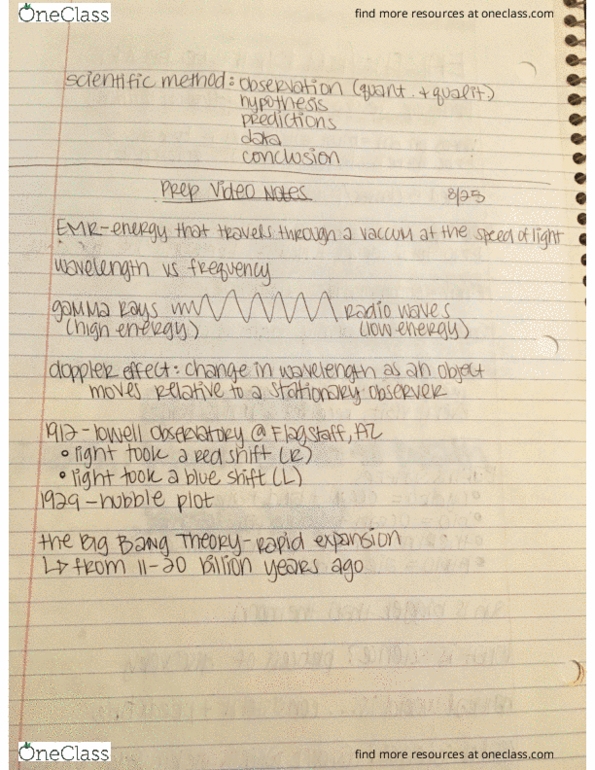 OneClass
find more resources at oneclass.com
scientific method: observation (quant. + qualit.)
hypothesis
predictions
data
conclusion
Prep Video Notes 8/23
EMR-energy that travels through a vaccum at the speed of light
wavelength vs frequency
gamma rays radio waves
(high energy) (low energy)
doppler effect: change in wavelength as an object
moves relative to a stationary observer
1912-lowell observatory @ Flagstaff, AZ
• light took a red shift (R)
• light took a blue shift (L)
1929-hubble plot
the Big Bang Theory-rapid expansion
↳ from 11-20 billion years ago
OneClass
find more resources at oneclass.com